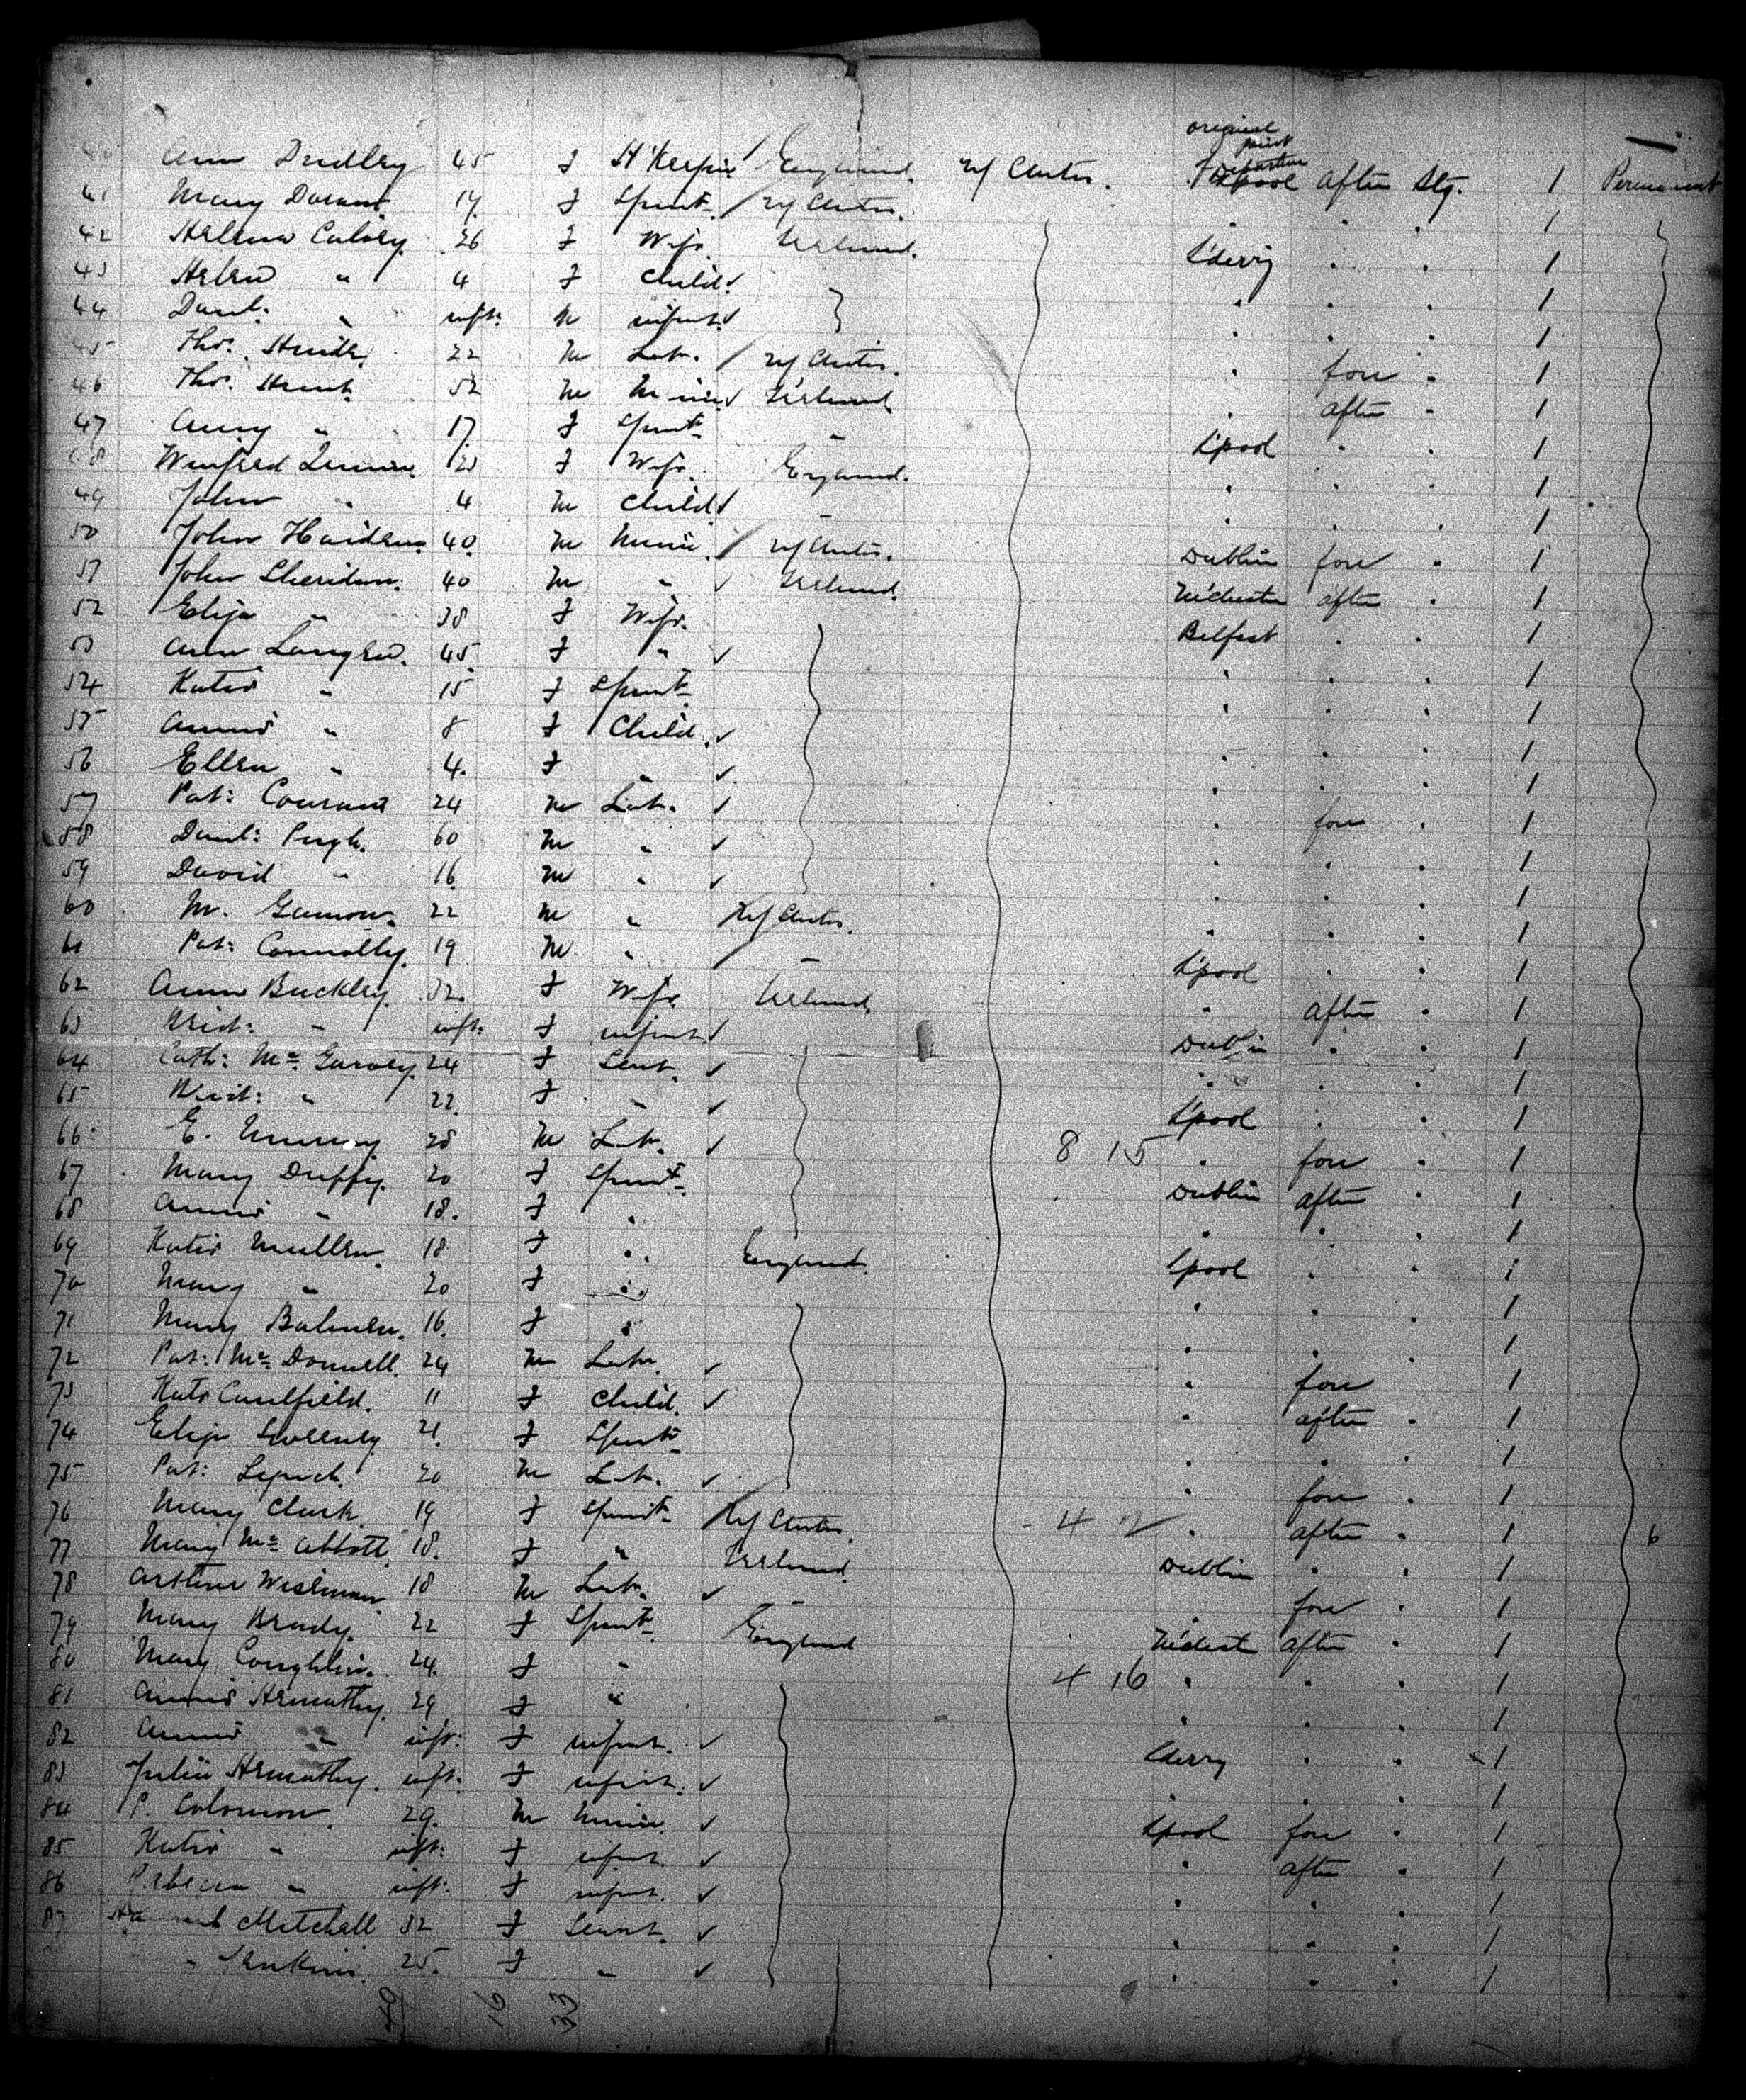 original
point
departure
40 Ann Dudley 45 F H'Keeper England U/States. L'pool after Stg. 1 Permanent
41 Mary Doran 19 F Spinst. U/States. " " " 1
42 Helena Calvey. 26 F Wife Ireland. L'derry " " 1
43 Helen " 4 F Child. " " " 1
44 Danl: " inft: M infant " " " 1
45 Thos. 22 M Lab. U/States. " fore " 1
46 Thos. Hunt. 52 M Miner Ireland " after " 1
47 Anny " 17. F Spinst " L'pool " " 1
48 Winifred 23 F Wife England. " " " 1
49 John " 4 M Child " " " " 1
50 John Haiden 40. M Miner U/States. Dublin fore " 1
51 John Sheridan. 40 M " Ireland. M'chester after " 1
52 Eliza " 38 F Wife. Belfast " " 1
53 Ann Langen. 45 F " " " " 1
54 Katie " 15 F Spinst " " " 1
55 Annie " 8 F Child. " " " 1
56 Ellen " 4. F " " " " 1
57 Pat: 24 M Lab. " fore " 1
58 Danl: Pugh. 60 M " " " " 1
59 David " 16. M " " " " 1
60 M. 22 M " U/States. " " " 1
61 Pat: Connolly. 19 M. " " L'pool " " 1
62 Annie Buckley. 32. F Wife Ireland. " after " 1
63 Brid: " inft: F infant Dublin " " 1
64 Cath: Mc Garvey. 24 F Sevt. " " " 1
65 Brid: " 22. F " L'pool " " 1
66 E. Murray 28 M Lab. 8 15 " fore " 1
67 Mary Duffy. 20 F Spinst. Dublin after " 1
68 Annie " 18. F " " " " 1
69 Katie Mullen. 18 F " England. L'pool " " 1
70 Mary " 20 F " " " " 1
71 Mary 16. F " " " " 1
72 Pat: Mc Donnell. 24 M Lab. " fore 1
73 Kate Caulfield. 11 F Child. " after " 1
74 Eliza Sweeney 21. F Spinst " " " 1
75 Pat: 20 M Lab. " fore " 1
76 Mary Clark 19 F Spinst U/States. 4 2 " after " 1 6
77 Mary Mc Abbott. 18. F " Ireland. Dublin " " 1
78 Arthur Wiseman 18 M Lab. " " fore " 1
79 Mary Brady. 22 F Spinst. England M'chester after " 1
80 Mary Coughlin. 24. F " 4 16 " " " 1
81 Annie 29 F " " " " 1
82 Annie " inft: F infant. L'derry " " 1
83 Julia inft: F infant. " " " 1
84 P. Colomon 29. M Miner. L'pool fore " 1
85 Katie " inft: F infant. " after " 1
86 Rebecca " inft: F infant. " " " 1
87 Mitchell 32 F Sevant. " " " 1
" Jenkins. 25. F " " " " 1
49 16 33